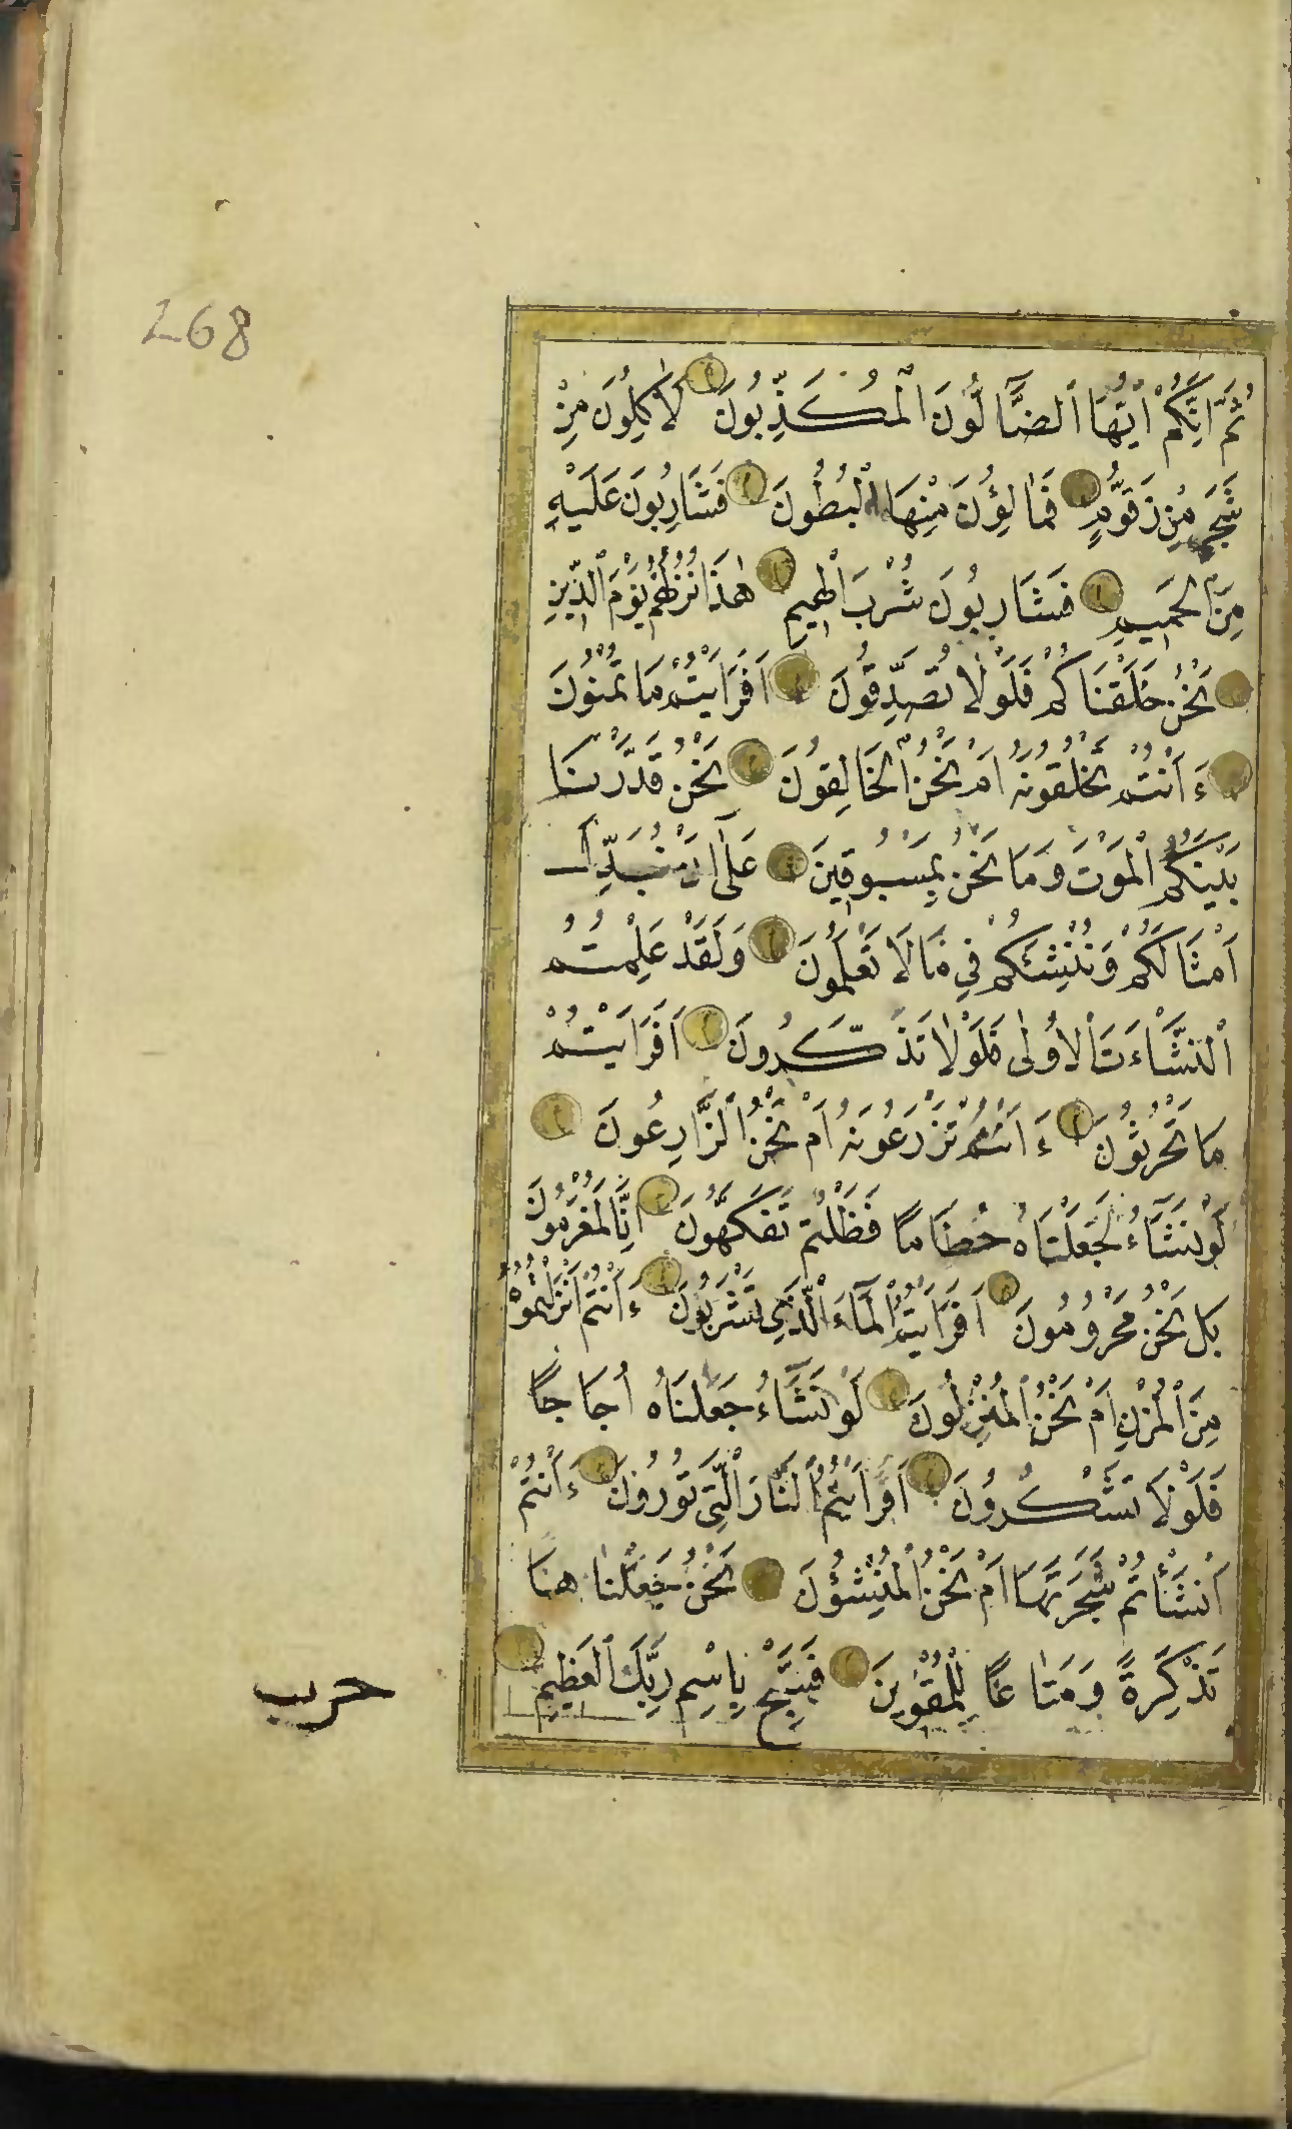 268
ثُمَّ اِنَّكُمْ اَيُّهَا الضَّٓالُّونَ الْمُكَذِّبُونَ لَاٰكِلُونَ مِنْ
شَجَرٍ مِنْ زَقُّومٍ فَمَالِؤُنَ مِنْهَا الْبُطُونَ فَشَارِبُونَ عَلَيْهِ
مِنَ الْحَمِيمِ فَشَارِبُونَ شُرْبَ الْهِيمِ هٰذَا نُزُلُهُمْ يَوْمَ الدِّينِ
نَحْنُ خَلَقْنَاكُمْ فَلَوْلَا تُصَدِّقُونَ اَفَرَاَيْتُمْ مَا تُمْنُونَ
ءَاَنْتُمْ تَخْلُقُونَهُ اَمْ نَحْنُ الْخَالِقُونَ نَحْنُ قَدَّرْنَا
بَيْنَكُمُ الْمَوْتَ وَمَا نَحْنُ بِمَسْبُوقِينَ عَلٰٓى اَنْ نُبَدِّلَ
اَمْثَالَكُمْ وَنُنْشِئَكُمْ فِي مَا لَا تَعْلَمُونَ وَلَقَدْ عَلِمْتُمُ
النَّشْاَةَ الْاُولٰى فَلَوْلَا تَذَكَّرُونَ اَفَرَاَيْتُمْ
مَا تَحْرُثُونَ ءَاَنْتُمْ تَزْرَعُونَهُ اَمْ نَحْنُ الزَّارِعُونَ
لَوْ نَشَٓاءُ لَجَعَلْنَاهُ حُطَامًا فَظَلْتُمْ تَفَكَّهُونَ اِنَّا لَمُغْرَمُونَ
بَلْ نَحْنُ مَحْرُومُونَ اَفَرَاَيْتُمُ الْمَٓاءَ الَّذِي تَشْرَبُونَ ءَاَنْتُمْ اَنْزَلْتُمُوهُ
مِنَ الْمُزْنِ اَمْ نَحْنُ الْمُنْزِلُونَ لَوْ نَشَٓاءُ جَعَلْنَاهُ اُجَاجًا
فَلَوْلَا تَشْكُرُونَ اَفَرَاَيْتُمُ النَّارَ الَّتِي تُورُونَ ءَاَنْتُمْ
اَنْشَأْتُمْ شَجَرَتَهَا اَمْ نَحْنُ الْمُنْشِؤُنَ نَحْنُ جَعَلْنَاهَا
تَذْكِرَةً وَمَتَاعًا لِلْمُقْوِينَ فَسَبِّحْ بِاسْمِ رَبِّكَ الْعَظِيمِ
حزب